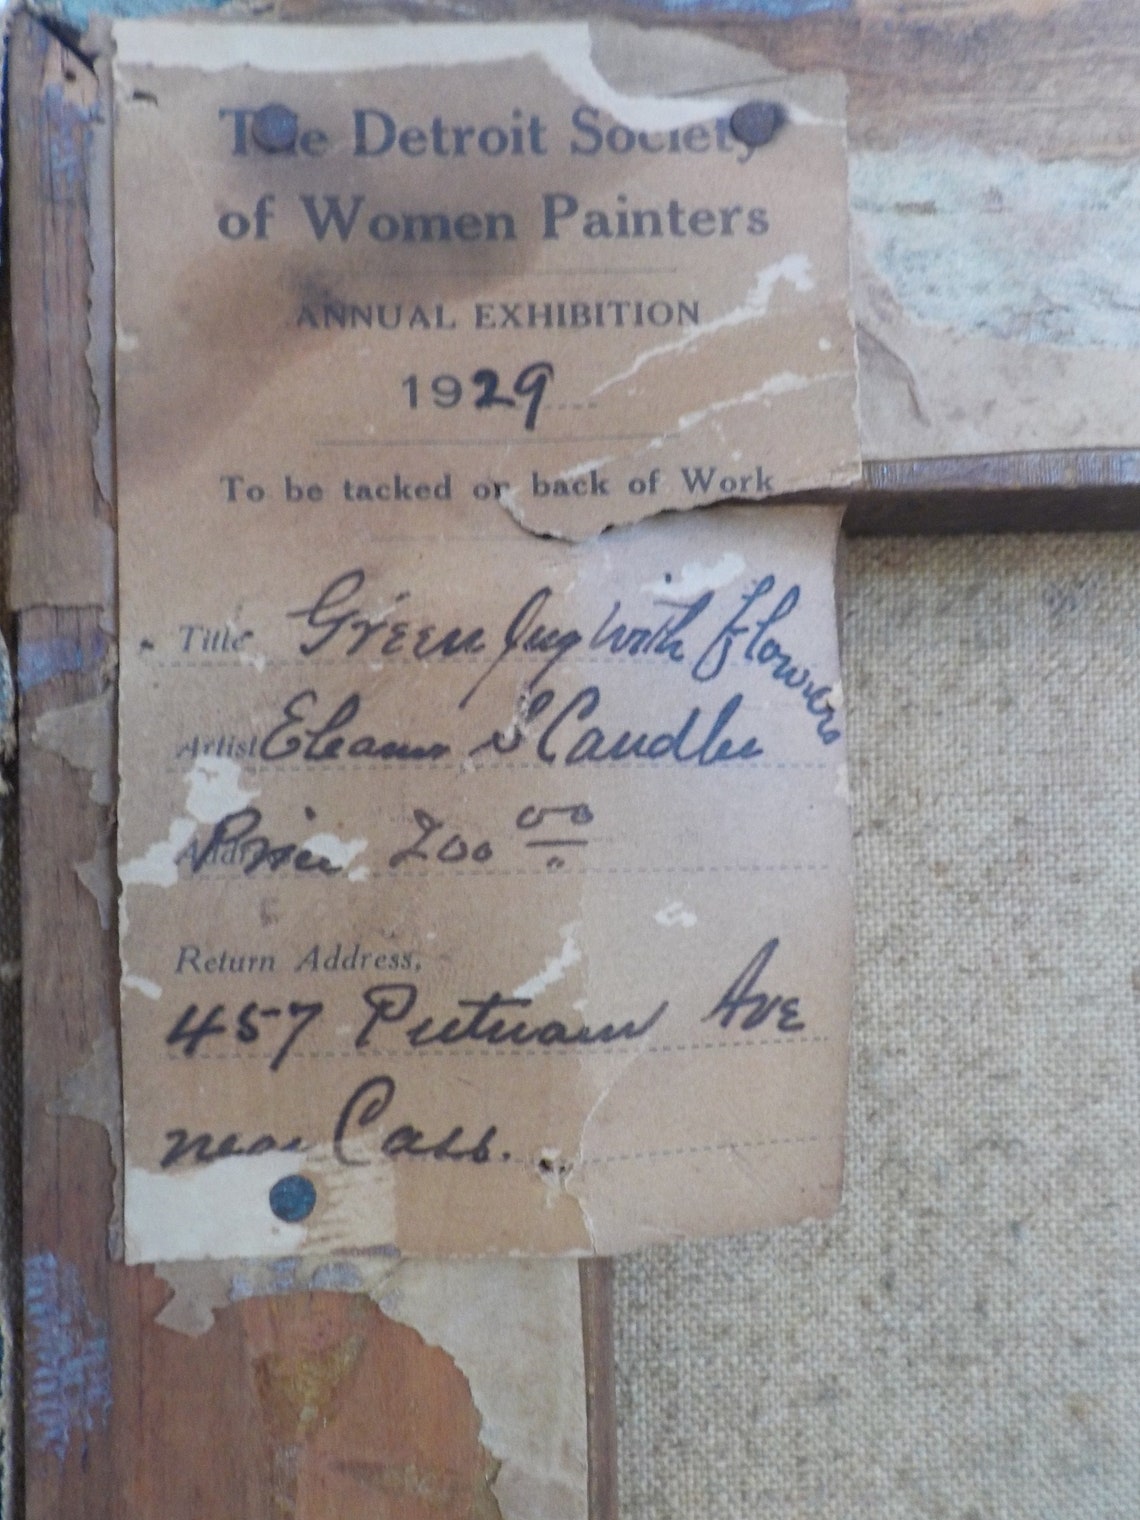 The Detroit Society
of Women Painters
ANNUAL EXHIBITION
1929
To be tacked on back of Work
Title Green Jug With Flowers
Artist Eleanor S Candler
Price 200 00
Return Address,
457 Putnam Ave
near Cass.